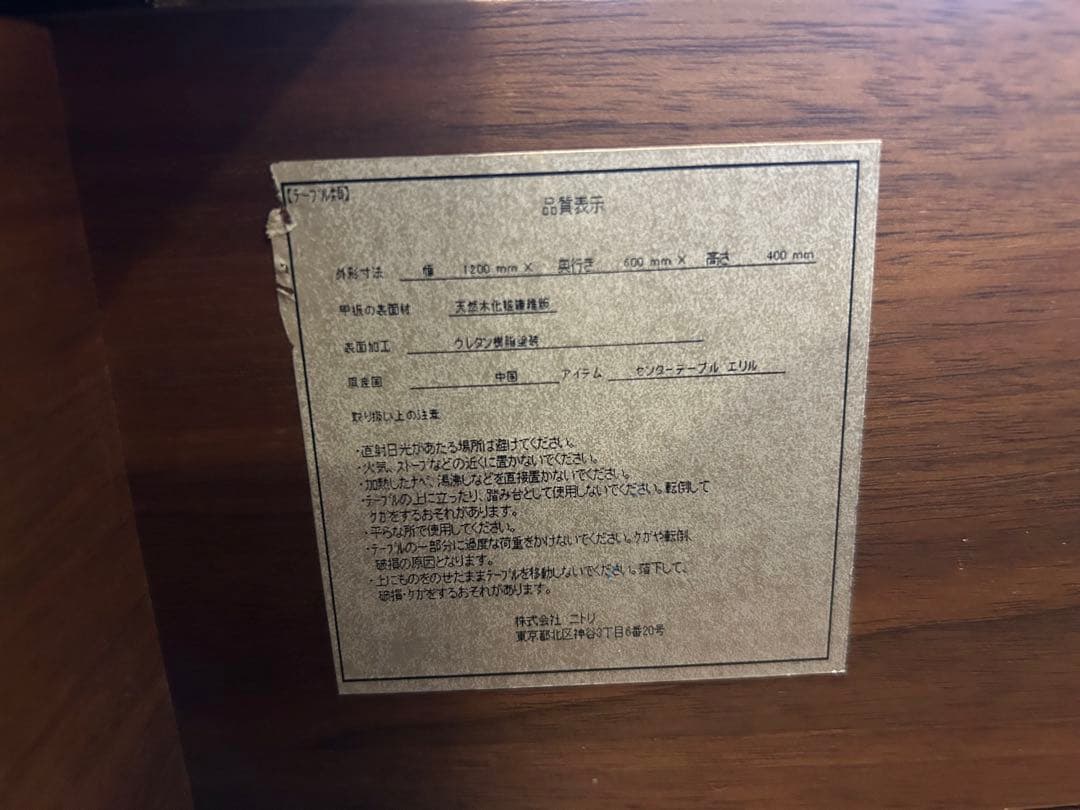 【テーブル類】
品質表示
外形寸法 幅 1200 mm × 奥行き 600 mm × 高さ 400 mm
甲板の表面材 天然木化粧繊維板
表面加工 ウレタン樹脂塗装
原産国 中国 アイテム センターテーブル エリル
取り扱い上の注意
・直射日光があたる場所は避けてください。
・火気、ストーブなどの近くに置かないでください。
・加熱したナベ、湯沸しなどを直接置かないでください。
・テーブルの上に立ったり、踏み台として使用しないでください。転倒して
ケガをするおそれがあります。
・平らな所で使用してください。
・テーブルの一部分に過度な荷重をかけないでください。ケガや転倒、
破損の原因となります。
・上にものをのせたままテーブルを移動しないでください。落下して、
破損・ケガをするおそれがあります。
株式会社 ニトリ
東京都北区神谷3丁目6番20号